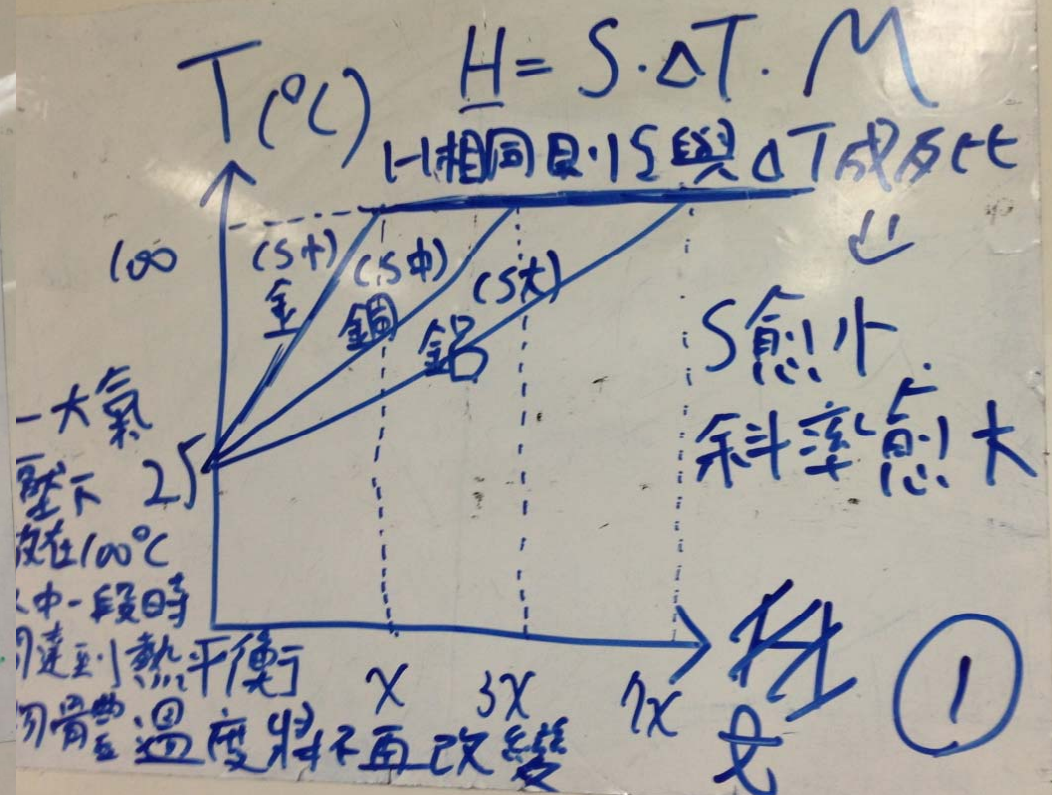 T(℃)
H = S·ΔT·M
H相同則S與ΔT成反比
⇓
S愈小
斜率愈大
100
25
(S小)
金
(S中)
銅
(S大)
鋁
一大氣
壓下
放在100℃
水中一段時
間達到熱平衡
物體溫度將不再改變
X
3X
7X
t
①